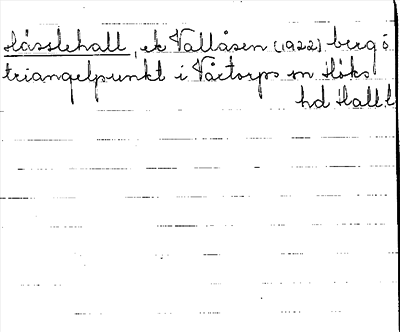 Hässlehall, ek Vallåsen (1922) berg ö
triangelpunkt i Våxtorps sn Höks
hd Hall l